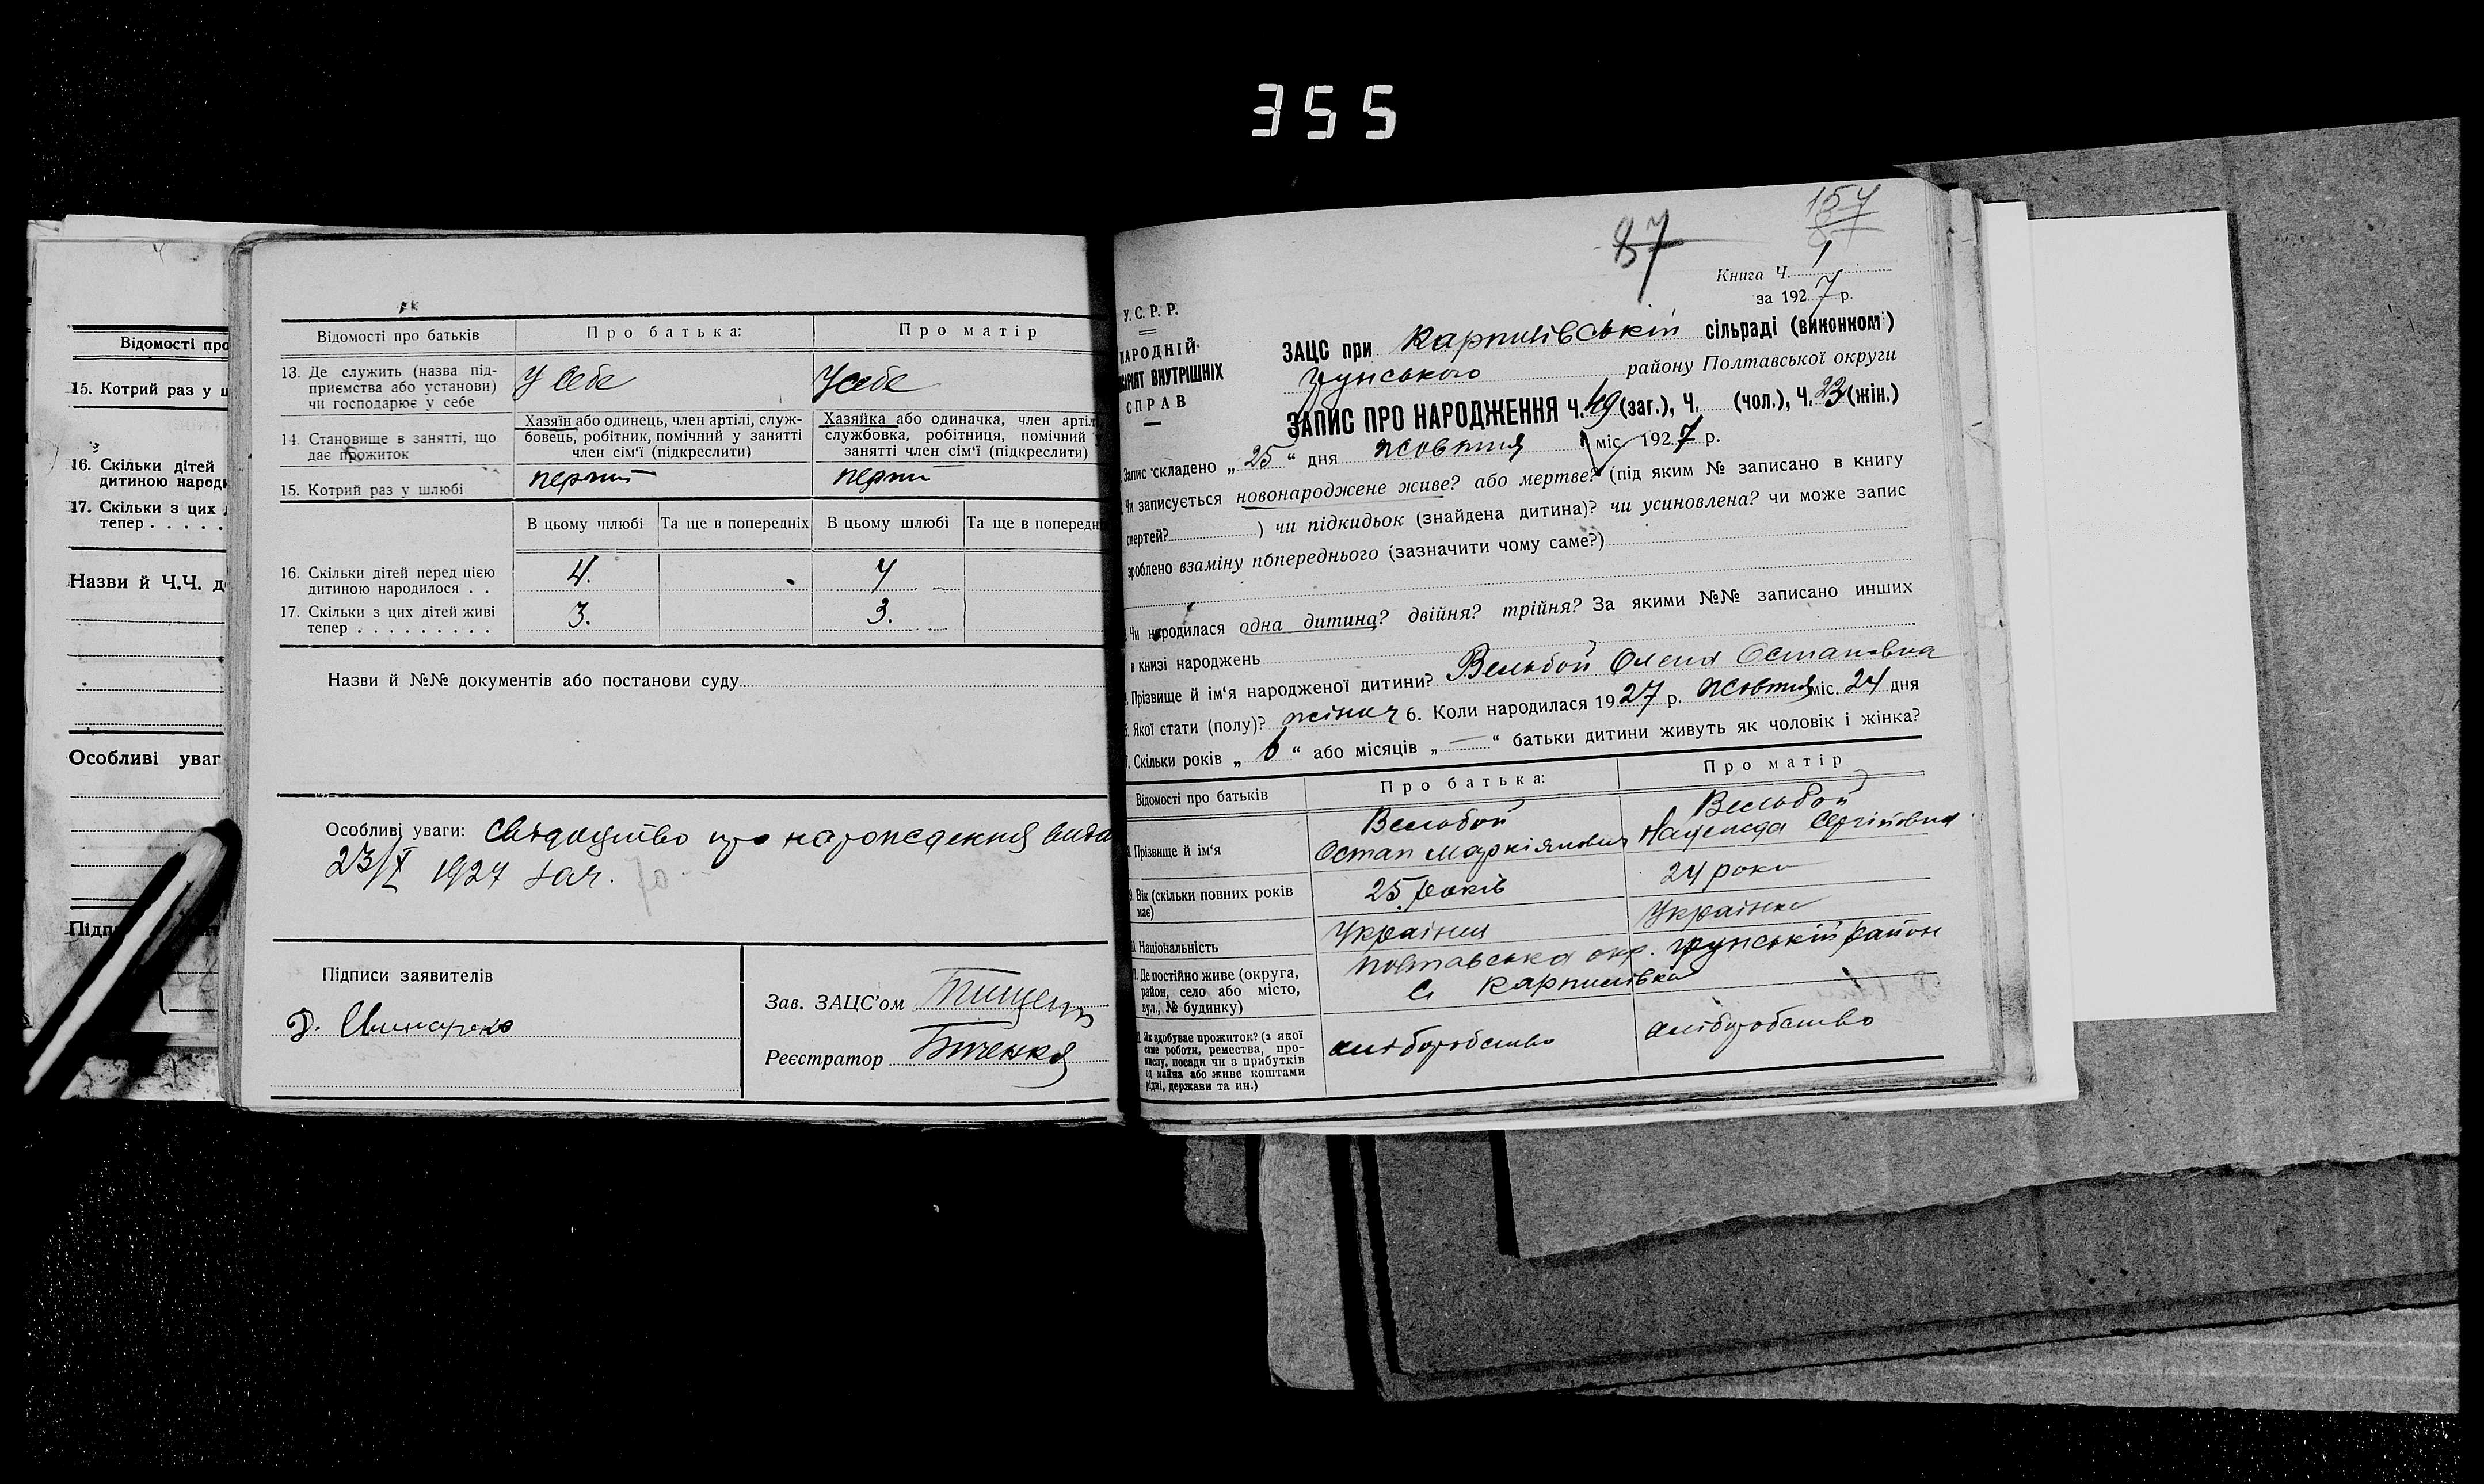 355
Відомості про
15. Котрий раз у ш
16. Скільки дітей
дитиною народ
17. Скільки з цих
тепер . . . . .
Назви й Ч.Ч. д
Особливі уваг
Підп
Відомості про батьків
Про батька:
Про матір
13. Де служить (назва під-
приємства або установи)
чи господарює у себе
У себе
У себе
14. Становище в занятті, що
дає прожиток
Хазяїн або одинець, член артілі, служ-
бовець, робітник, помічний у занятті
член сім'ї (підкреслити)
Хазяйка або одиначка, член артіл
службовка, робітниця, помічний
занятті член сім'ї (підкреслити)
15. Котрий раз у шлюбі
В цьому шлюбі
Та ще в попередніх
В цьому шлюбі
Та ще в попередн
16. Скільки дітей перед цією
дитиною народилося . .
4.
4
17. Скільки з цих дітей живі
тепер . . . . . . . . .
3.
3.
Назви й №№ документів або постанови суду
Особливі уваги:
1927
Підписи заявителів
Зав. ЗАЦС'ом
Реєстратор
87
157
Книга Ч. 1
за 1927 р.
У.С.Р.Р.
НАРОДНІЙ
АРІЯТ ВНУТРІШНІХ
СПРАВ
ЗАЦС при Карпилівській сільраді (виконкомі)
Грунського району Полтавської округи
ЗАПИС ПРО НАРОДЖЕННЯ Ч. 49 (заг.), Ч. (чол.), Ч. 23 (жін.)
Запис складено „ 25 “ дня жовтня міс. 1927 р.
Чи записується новонароджене живе? або мертве? (під яким № записано в книгу
смертей? ) чи підкидьок (знайдена дитина)? чи усиновлена? чи може запис
зроблено взаміну попереднього (зазначити чому саме?)
Чи народилася одна дитина? двійня? трійня? За якими №№ записано инших
в книзі народжень
Прізвище й ім'я народженої дитини? Вельбой Олена Остаповна
Якої стати (полу)? жіноч 6. Коли народилася 1927 р. жовтня міс. 24 дня
7. Скільки років „ 6 “ або місяців „ — “ батьки дитини живуть як чоловік і жінка?
Відомості про батьків
Про батька:
Про матір
Прізвище й ім'я
Вельбой
Остап Маркіянович
Вельбой
Надежда Сергіївна
Вік (скільки повних років
має)
25 років
24 роки
Національність
Українець
Українка
Де постійно живе (округа,
район, село або місто,
вул., № будинку)
Полтавська окр. Грунській район
с. Карпилівка
Як здобуває прожиток? (з якої
саме роботи, ремества, про-
мислу, посади чи з прибутків
од майна або живе коштами
рідні, держави та ин.)
хліборобство
хліборобство